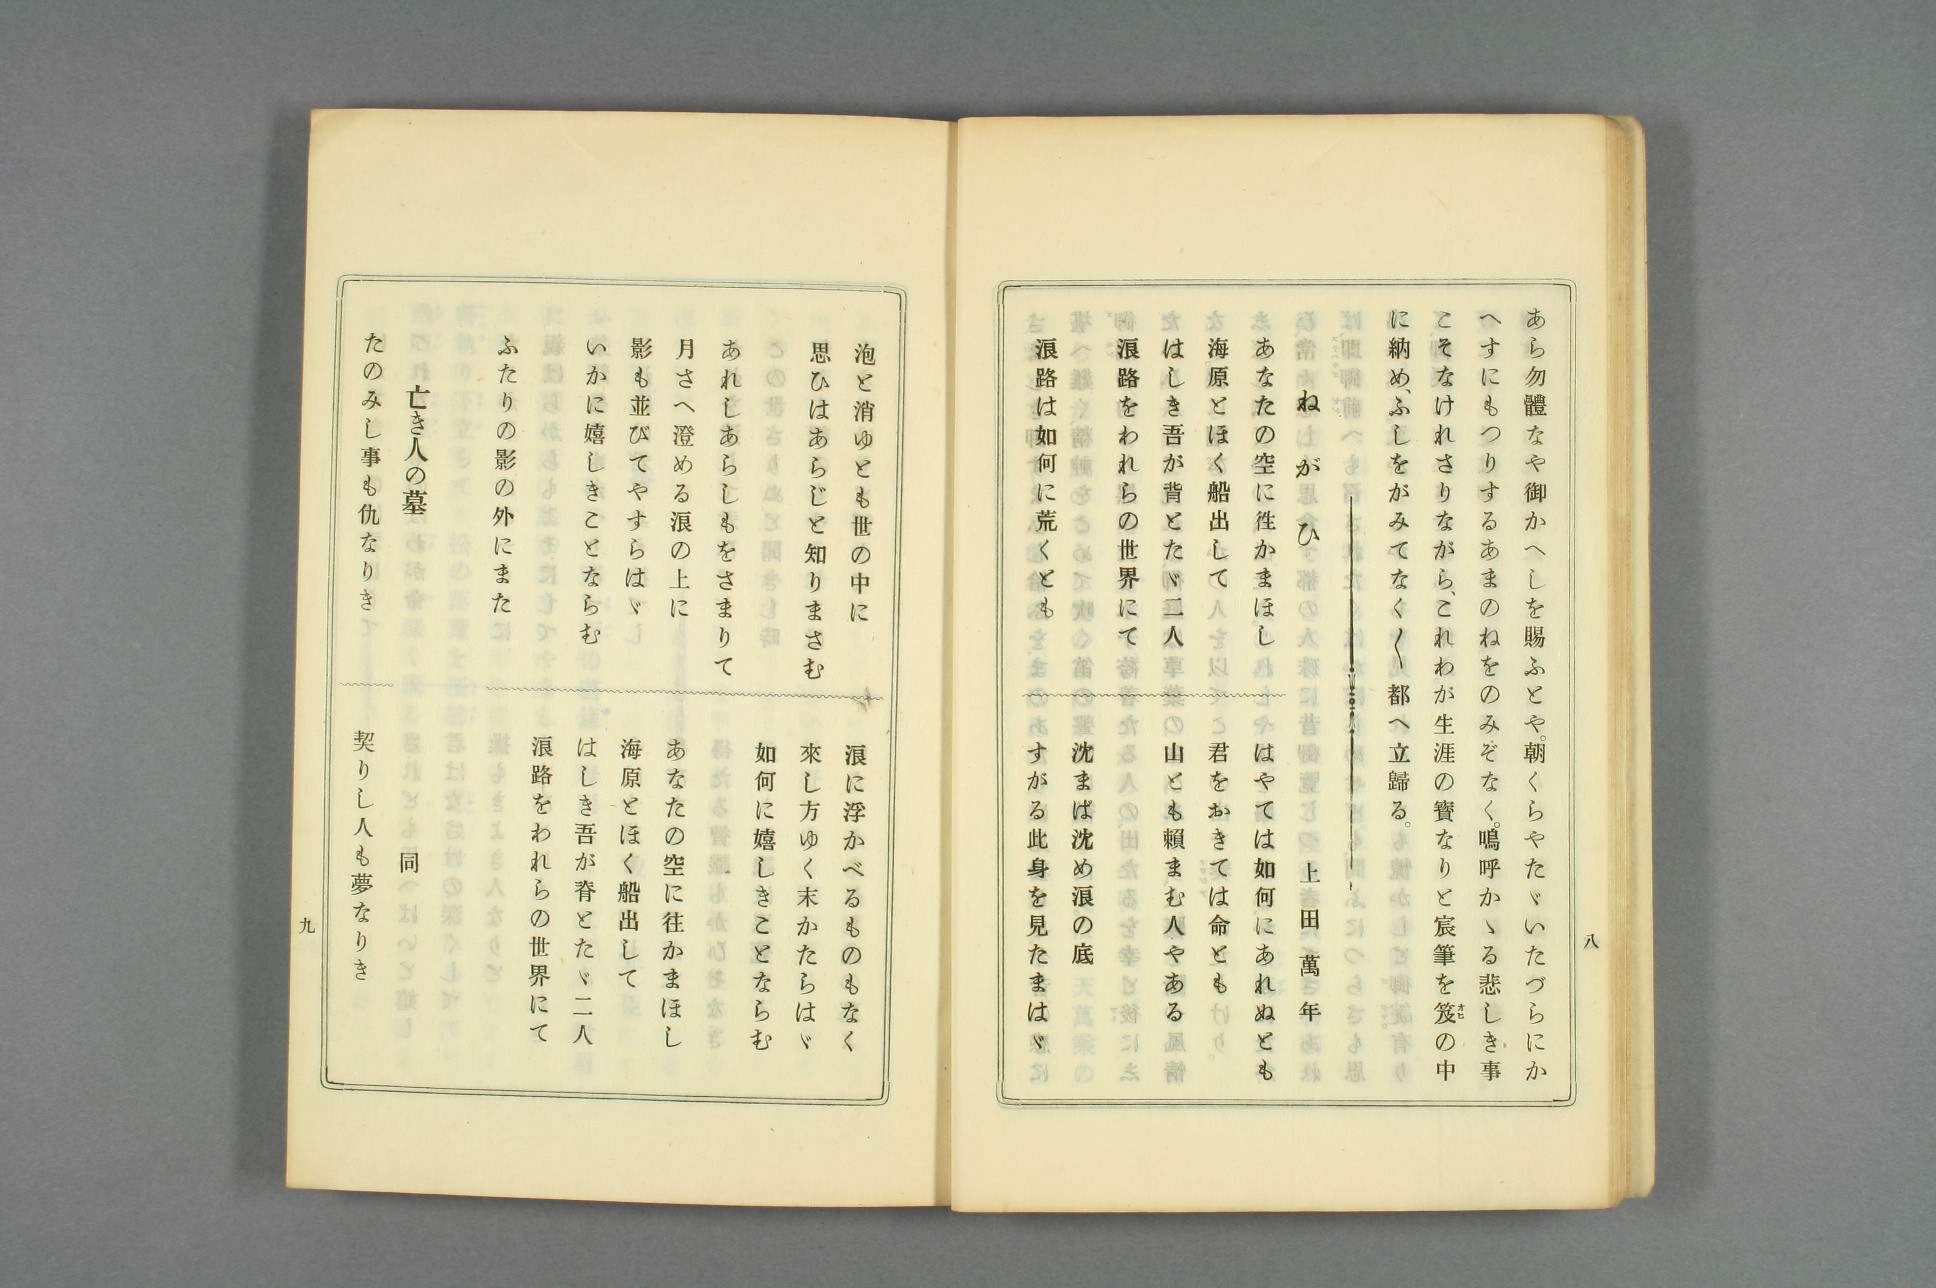 あら勿體なや御かへしを賜ふとや。朝くらやたゞいたづらにか
へすにもつりするあまのねをのみぞなく。嗚呼かゝる悲しき事
こそなけれさりながら、これわが生涯の寶なりと宸筆を笈の中
オヒ
に納め、ふしをがみてなく〱都へ立歸る。
ねがひ 上田萬年
あなたの空に徃かまほし
海原とほく船出して
はしき吾が背とたゞ二人
浪路をわれらの世界にて
浪路は如何に荒くとも
はやては如何にあれぬとも
君をおきては命とも
山とも賴まむ人やある
沈まば沈め浪の底
すがる此身を見たまはゞ
八
泡と消ゆとも世の中に
思ひはあらじと知りまさむ
あれしあらしもをさまりて
月さへ澄める浪の上に
影も並びてやすらはゞ
いかに嬉しきことならむ
ふたりの影の外にまた
浪に浮かべるものもなく
來し方ゆく末かたらはゞ
如何に嬉しきことならむ
あなたの空に往かまほし
海原とほく船出して
はしき吾が脊とたゞ二人
浪路をわれらの世界にて
亡き人の墓 同
たのみし事も仇なりき
契りし人も夢なりき
九